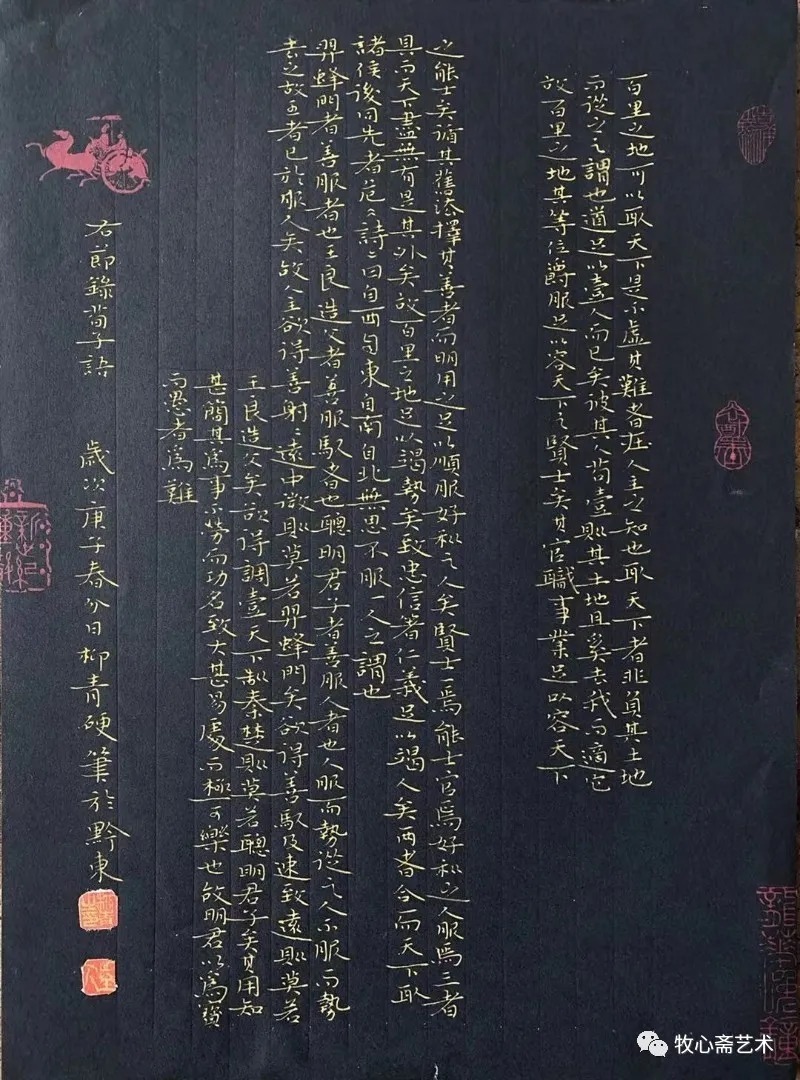 百里之地可以取天下是不虛其難者在人主之知也取天下者非負其土地
而從之之謂也道足以壹人而已矣彼其人苟壹則其土地且奚去我而適它
故百里之地其等位爵服足以容天下之賢士矣其官職事業足以容天下
之能士矣循其舊法擇其善者而明用之足以順服好利之人矣賢士一焉能士官焉好利之人服焉三者
具而天下盡無有是其外矣故百里之地足以竭勢矣致忠信箸仁義足以竭人矣兩者合而天下取
諸侯後同先者危詩曰自西自東自南自北無思不服一人之謂也
羿蜂門者善服者也王良造父者善服馭者也聰明君子者善服人者也人服而勢從之人不服而勢
去之故王者已於服人矣故人主欲得善射〻遠中微則莫若羿蜂門矣欲得善馭及速致遠則莫若
王良造父矣欲得調壹天下制秦楚則莫若聰明君子矣其用知
甚簡其為事不勞而功名致大甚易處而極可樂也故明君以為寶
而愚者為難
右節錄荀子語 歲次庚子春分日柳青硬筆於黔東
牧心斋艺术